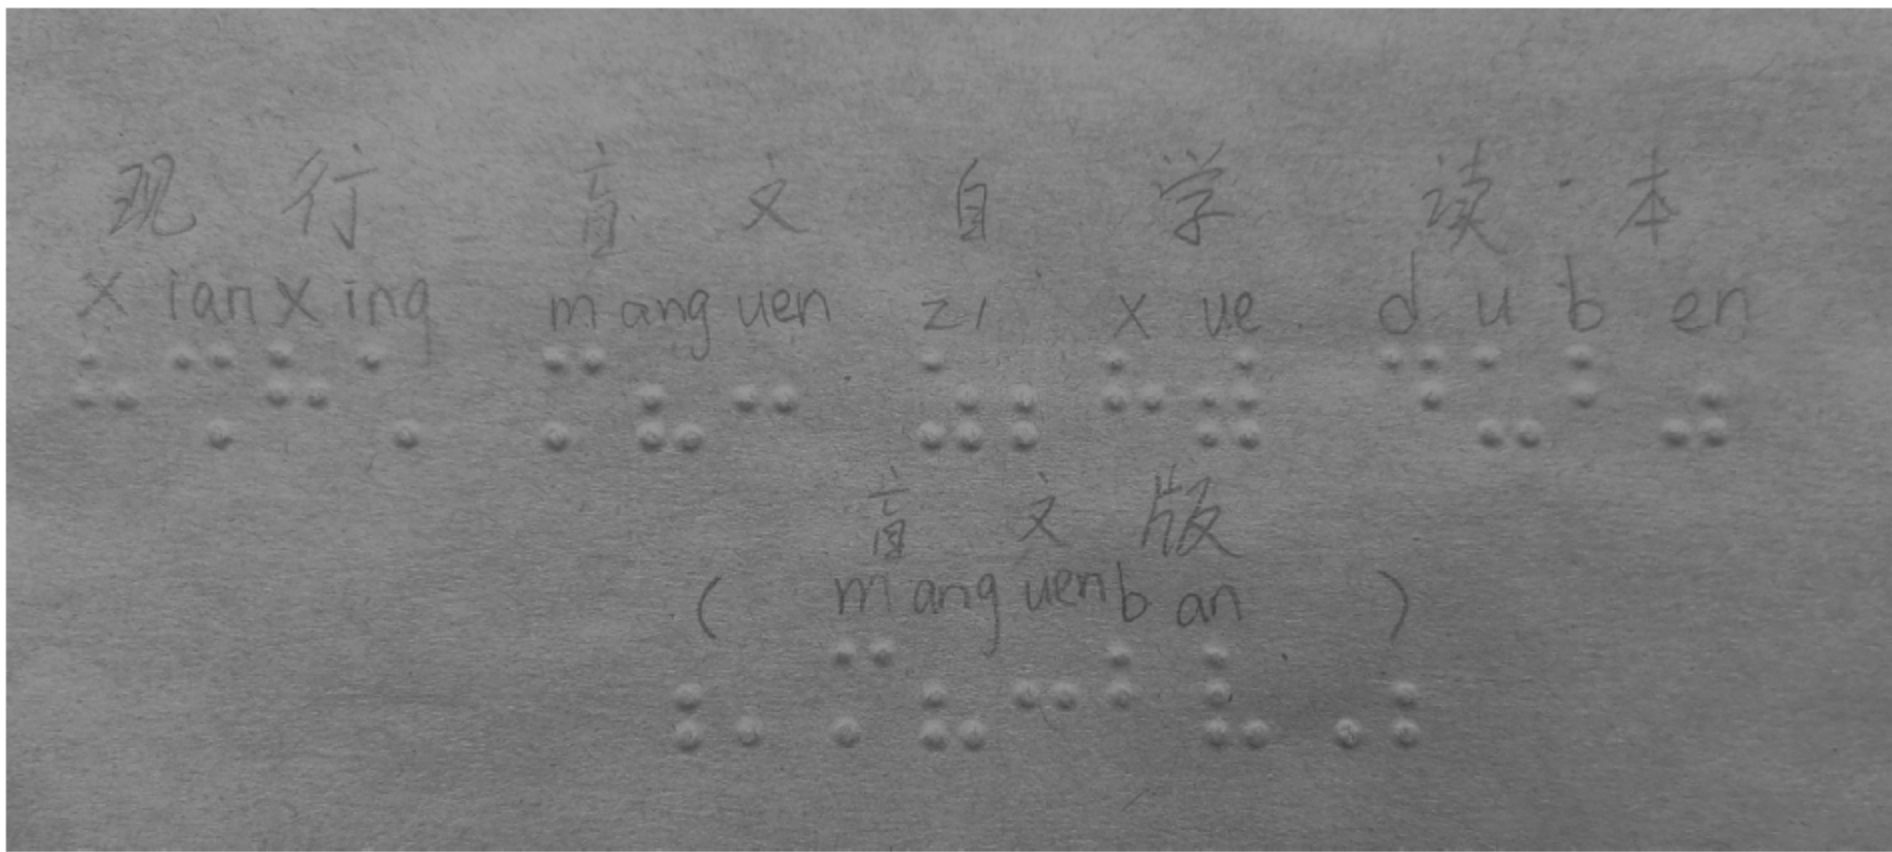 现 行 盲 文 自 学 读 本
xianxing manguen zi xue duben
⠓⠩⠓⠡ ⠍⠦⠒ ⠵⠆⠓⠾ ⠙⠥⠃⠴
盲 文 版
( manguenban )
⠰⠄⠍⠦⠒⠃⠧⠠⠆